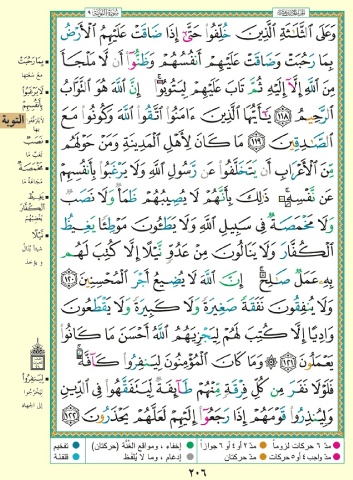 وَعَلَى ٱلثَّلَـٰثَةِ ٱلَّذِينَ خُلِّفُوا۟ حَتَّىٰٓ إِذَا ضَاقَتْ عَلَيْهِمُ ٱلْأَرْضُ
بِمَا رَحُبَتْ وَضَاقَتْ عَلَيْهِمْ أَنفُسُهُمْ وَظَنُّوٓا۟ أَن لَّا مَلْجَأَ
مِنَ ٱللَّهِ إِلَّآ إِلَيْهِ ثُمَّ تَابَ عَلَيْهِمْ لِيَتُوبُوٓا۟ ۚ إِنَّ ٱللَّهَ هُوَ ٱلتَّوَّابُ
ٱلرَّحِيمُ ١١٨ يَـٰٓأَيُّهَا ٱلَّذِينَ ءَامَنُوا۟ ٱتَّقُوا۟ ٱللَّهَ وَكُونُوا۟ مَعَ
ٱلصَّـٰدِقِينَ ١١٩ مَا كَانَ لِأَهْلِ ٱلْمَدِينَةِ وَمَنْ حَوْلَهُم
مِّنَ ٱلْأَعْرَابِ أَن يَتَخَلَّفُوا۟ عَن رَّسُولِ ٱللَّهِ وَلَا يَرْغَبُوا۟ بِأَنفُسِهِمْ
عَن نَّفْسِهِۦ ۚ ذَٰلِكَ بِأَنَّهُمْ لَا يُصِيبُهُمْ ظَمَأٌ وَلَا نَصَبٌ
وَلَا مَخْمَصَةٌ فِى سَبِيلِ ٱللَّهِ وَلَا يَطَـُٔونَ مَوْطِئًا يَغِيظُ
ٱلْكُفَّارَ وَلَا يَنَالُونَ مِنْ عَدُوٍّ نَّيْلًا إِلَّا كُتِبَ لَهُم
بِهِۦ عَمَلٌ صَـٰلِحٌ ۚ إِنَّ ٱللَّهَ لَا يُضِيعُ أَجْرَ ٱلْمُحْسِنِينَ ١٢٠
وَلَا يُنفِقُونَ نَفَقَةً صَغِيرَةً وَلَا كَبِيرَةً وَلَا يَقْطَعُونَ
وَادِيًا إِلَّا كُتِبَ لَهُمْ لِيَجْزِيَهُمُ ٱللَّهُ أَحْسَنَ مَا كَانُوا۟
يَعْمَلُونَ ١٢١ ۞ وَمَا كَانَ ٱلْمُؤْمِنُونَ لِيَنفِرُوا۟ كَآفَّةً ۚ
فَلَوْلَا نَفَرَ مِن كُلِّ فِرْقَةٍ مِّنْهُمْ طَآئِفَةٌ لِّيَتَفَقَّهُوا۟ فِى ٱلدِّينِ
وَلِيُنذِرُوا۟ قَوْمَهُمْ إِذَا رَجَعُوٓا۟ إِلَيْهِمْ لَعَلَّهُمْ يَحْذَرُونَ ١٢٢
بِمَا رَحُبَتْ
مع سعتها
لَا يَرْغَبُوا
بِأَنْفُسِهِمْ
التوبة
نَصَبٌ
تعب ما
مَخْمَصَةٌ
مجاعة ما
يَغِيظُ
الكُفَّارَ
يغضبهم
نَيْلًا
لِيَنْفِرُوا
ليخرجوا
إلى الجهاد
مدّ ٦ حركات لزوماً
مدّ ٢ أو ٤ أو ٦ جوازاً
إخفاء، ومواقع الغُنَّة (حركتان)
تفخيم
مدّ واجب ٤ أو ٥ حركات
مدّ حركتان
إدغام، وما لا يُلفظ
قلقلة
٢٠٦